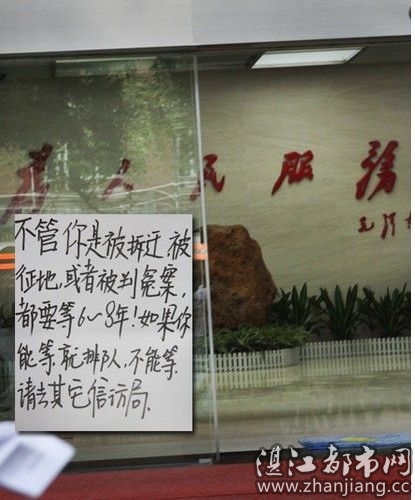 为人民服务
毛泽东
不管你是被拆迁、被
征地,或者被判冤案,
都要等6~8年!如果你
能等,就排队,不能等,
请去其它信访局.
湛江都市网
www.zhanjiang.cc